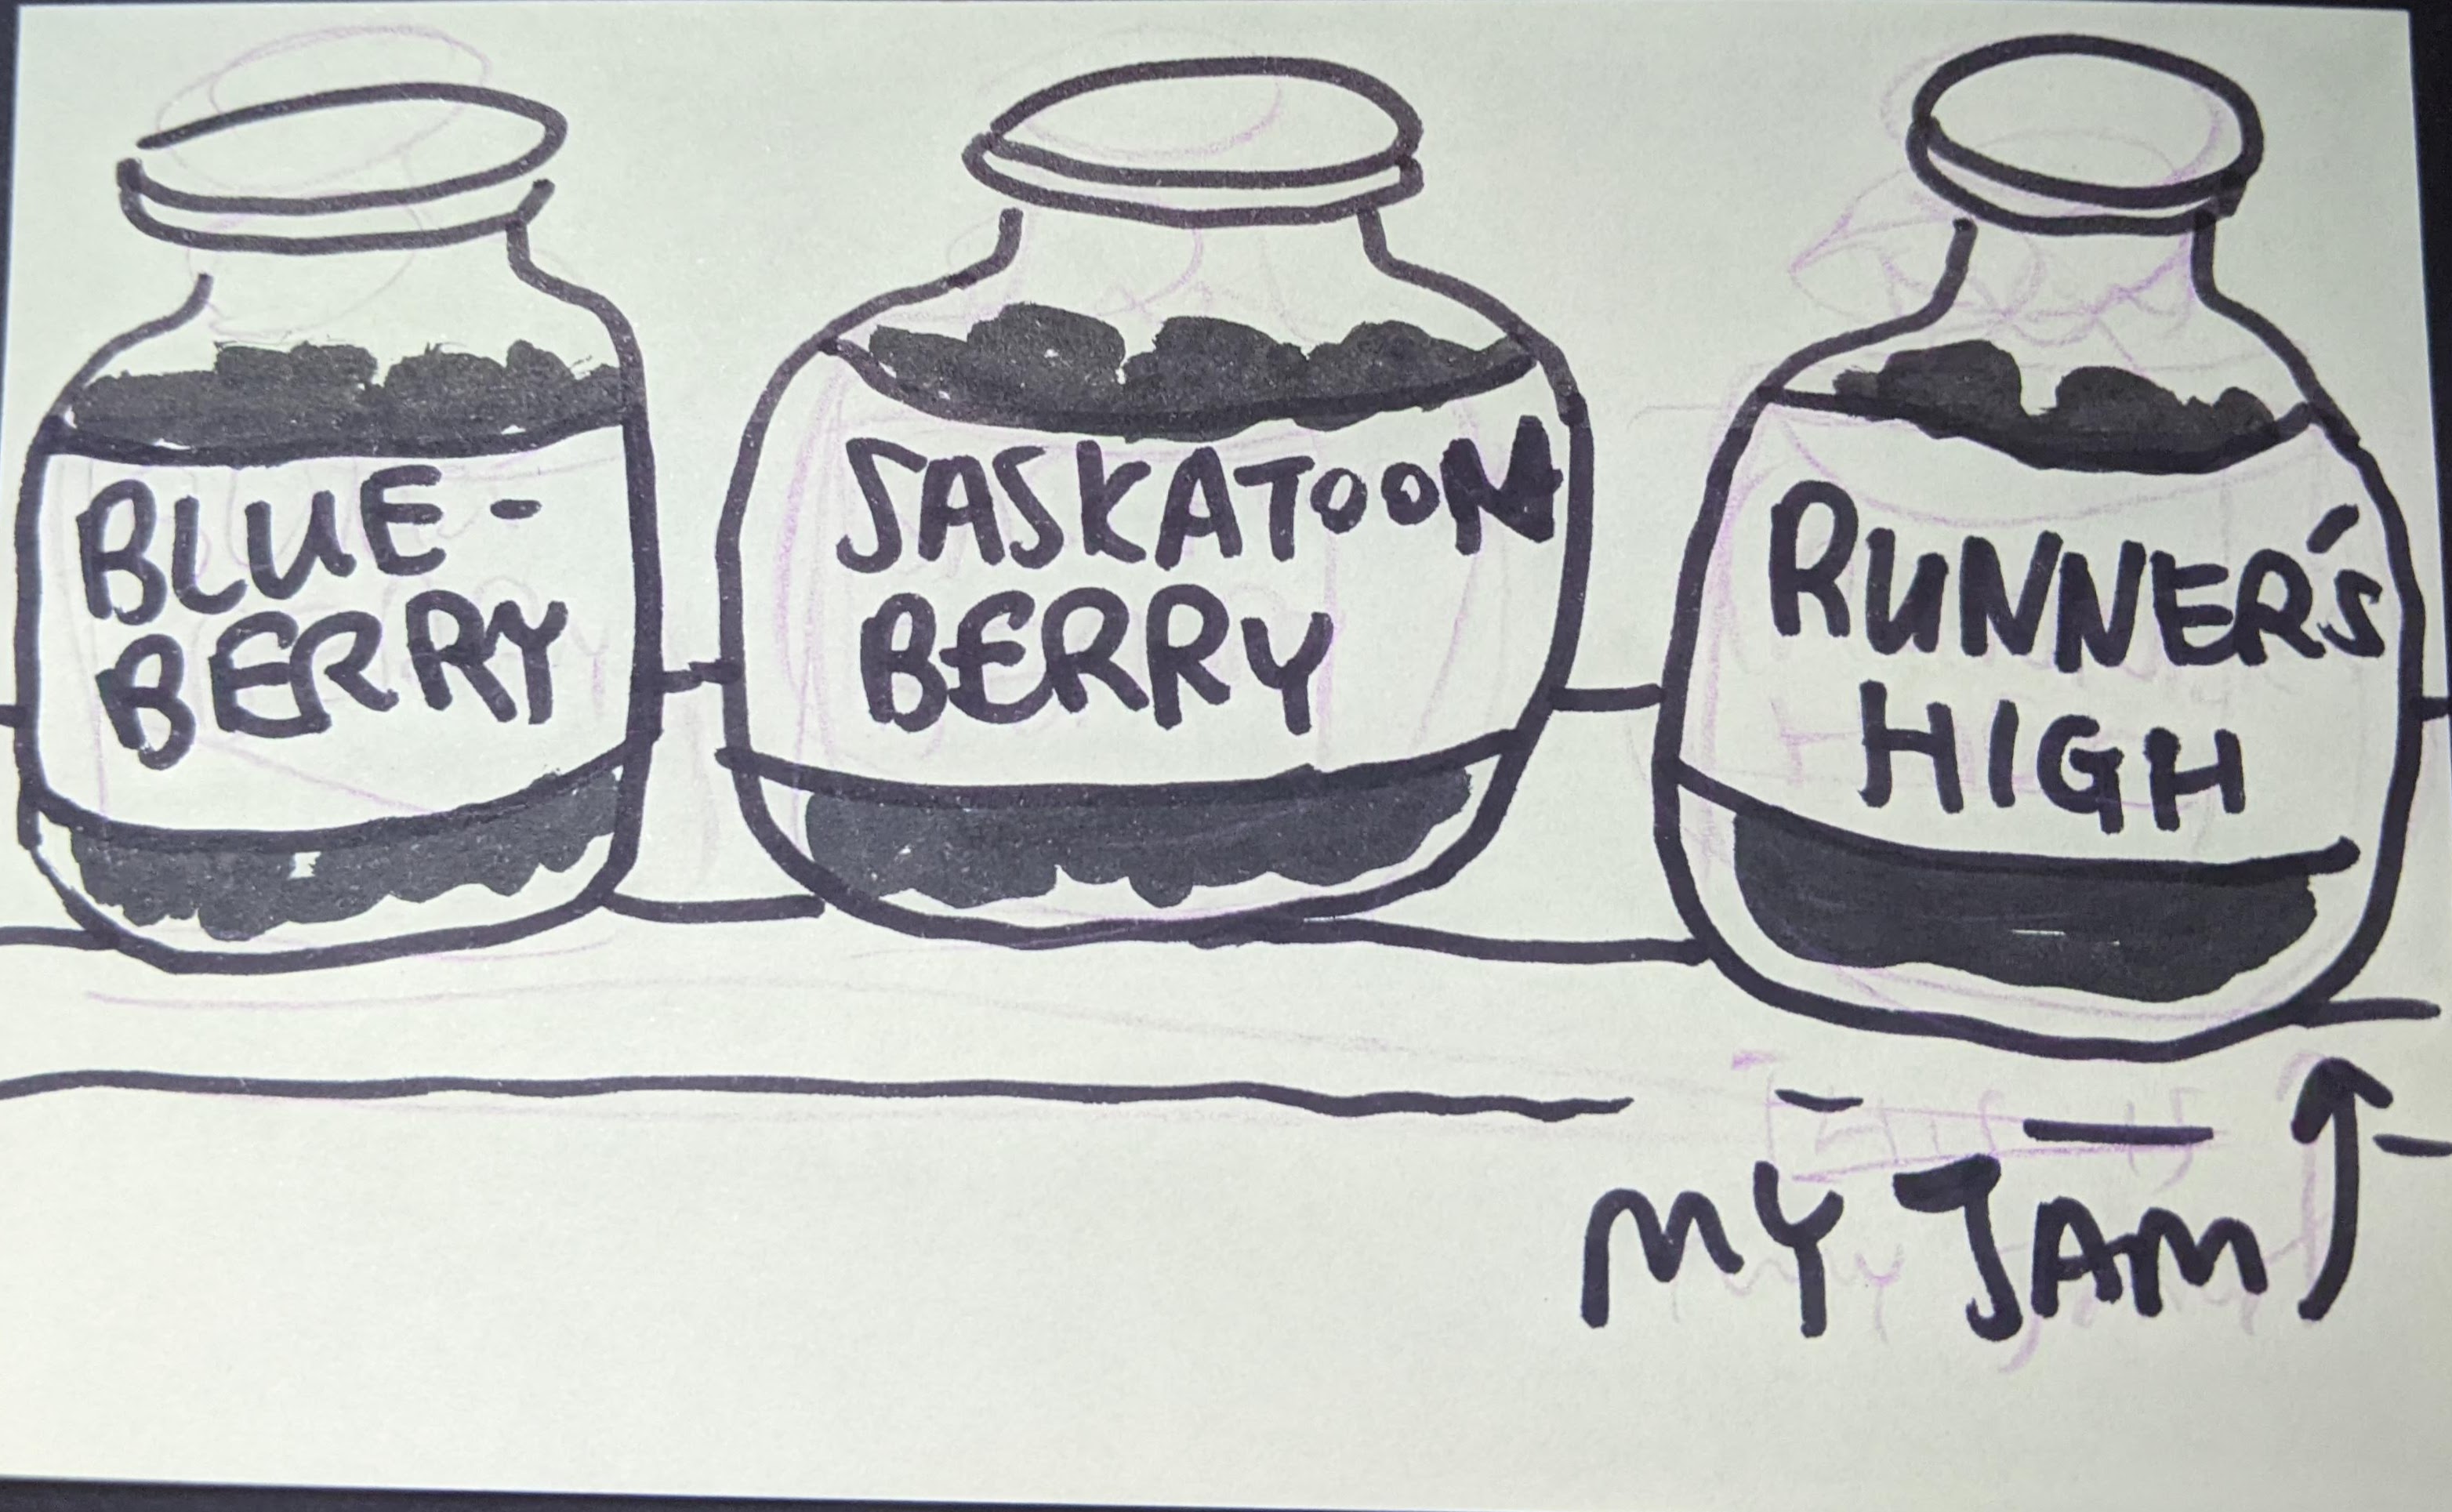 BLUE-
BERRY
SASKATOON
BERRY
RUNNER'S
HIGH
MY JAM